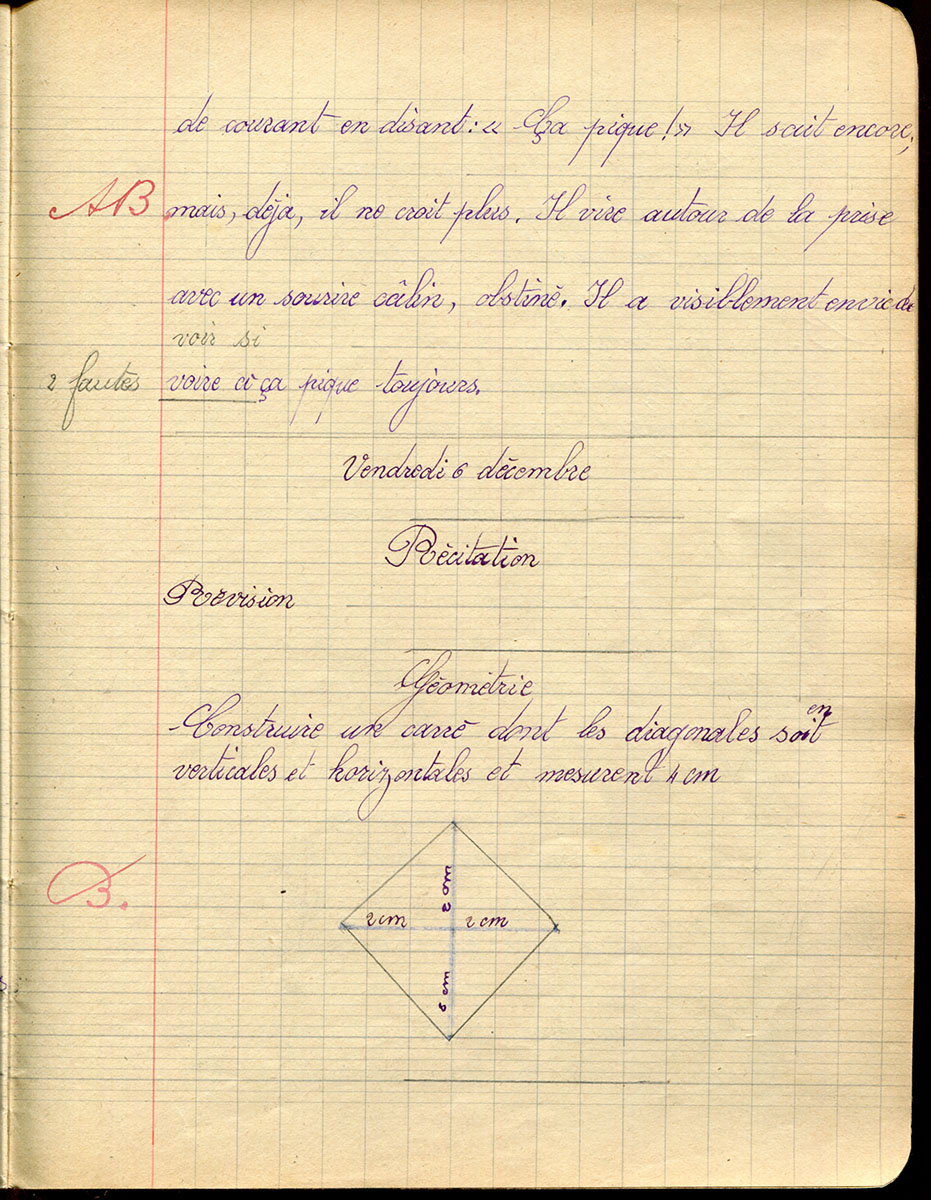 de courant en disant : « Ça pique ! » Il sait encore,
AB mais, déja, il ne croit plus. Il vire autour de la prise
avec un sourire câlin, obstiné. Il a visiblement envie de
voir si
2 fautes voire ci ça pique toujours.
Vendredi 6 décembre
Récitation
Révision
Géométrie
en
Construire un carré dont les diagonales soit
verticales et horizontales et mesurent 4 cm
B.
2 cm
2 cm 2 cm
2 cm